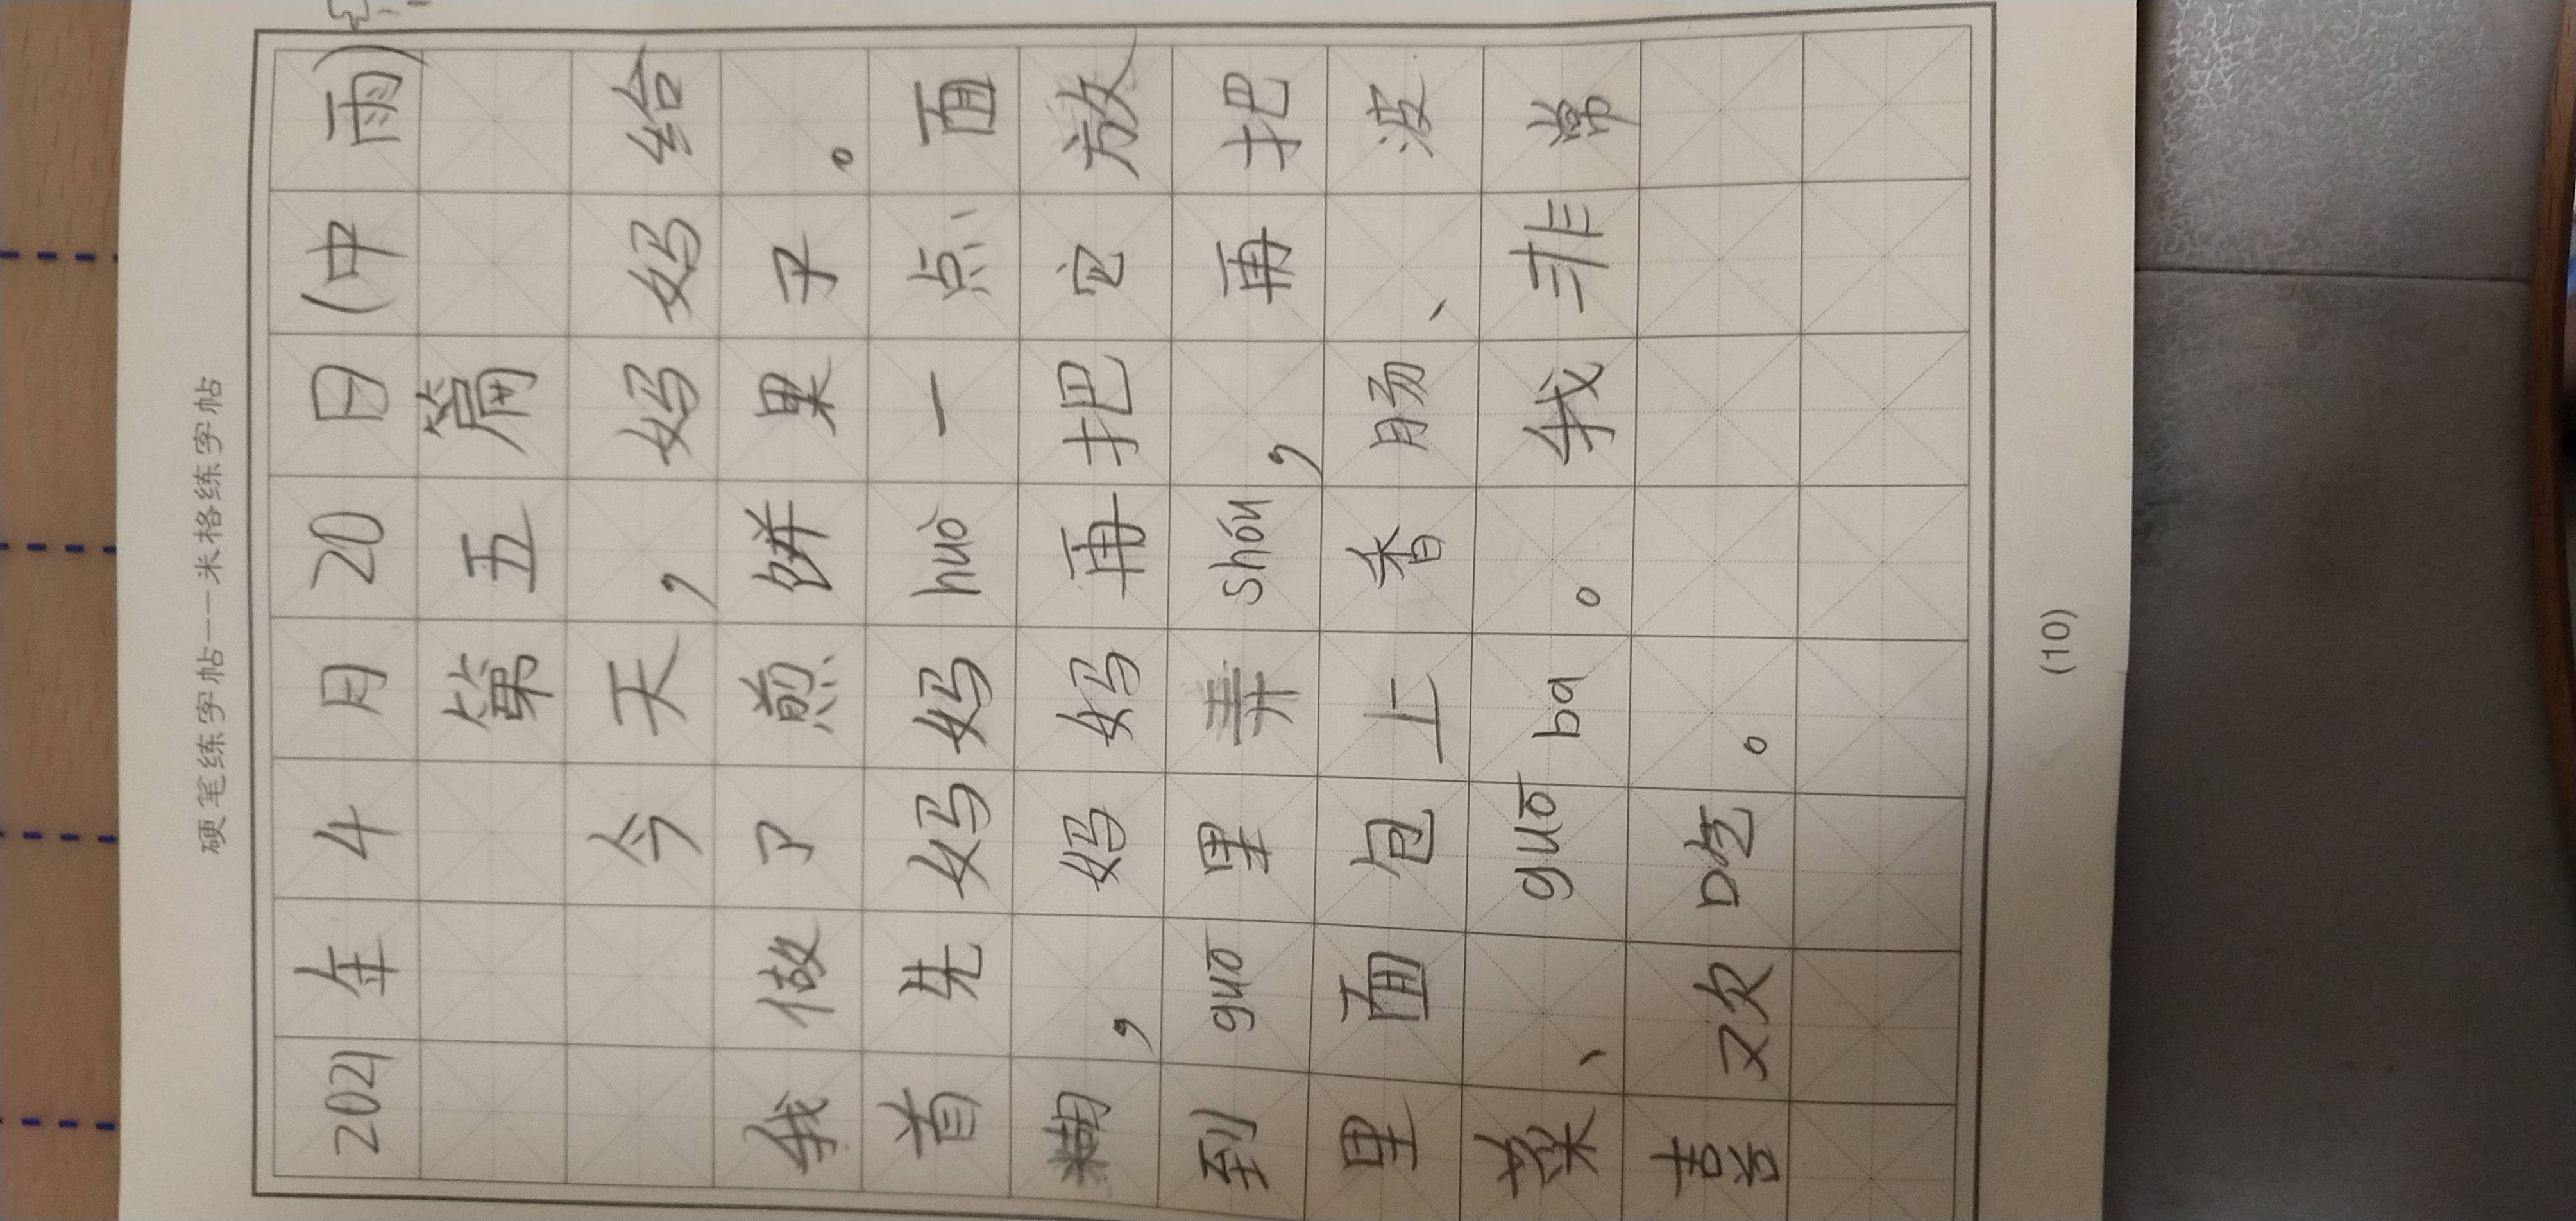 硬笔练字帖---米格练字帖
2021年4月20日(中雨)
第五篇
今天,妈妈给
我做了煎饼果子。
首先妈妈huò一点面
糊,妈妈再把它放
到guō里弄shóu,再把
里面包上香肠、菠
菜、guō ba。我非常
喜欢吃。
(10)